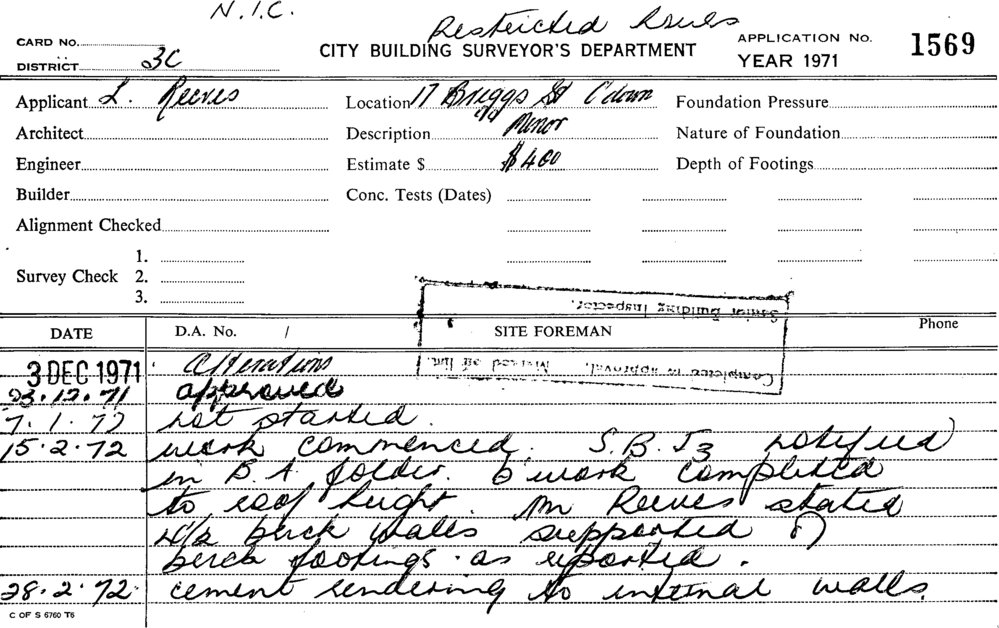 N.I.C.
Restricted Issues
CARD NO.
CITY BUILDING SURVEYOR'S DEPARTMENT
APPLICATION No. 1569
DISTRICT 3C
YEAR 1971
Applicant L. Reeves
Location 17 Briggs St C'down
Foundation Pressure
Architect
Description Minor
Nature of Foundation
Engineer
Estimate $ $400
Depth of Footings
Builder
Conc. Tests (Dates)
Alignment Checked
1.
Survey Check 2.
3.
Senior Building Inspector.
DATE D.A. No. / SITE FOREMAN Phone
Completed to approval. Marked off list.
3 DEC 1971 Alterations
23.12.71 approved
7.1.72 not started.
15.2.72 work commenced. S.B.I3 notified
in B.A. folder. work completed
to roof height. Mr Reeves stated
4½ brick walls supported
brick footings as reported.
28.2.72. cement rendering to internal walls.
C OF S 6760 T6